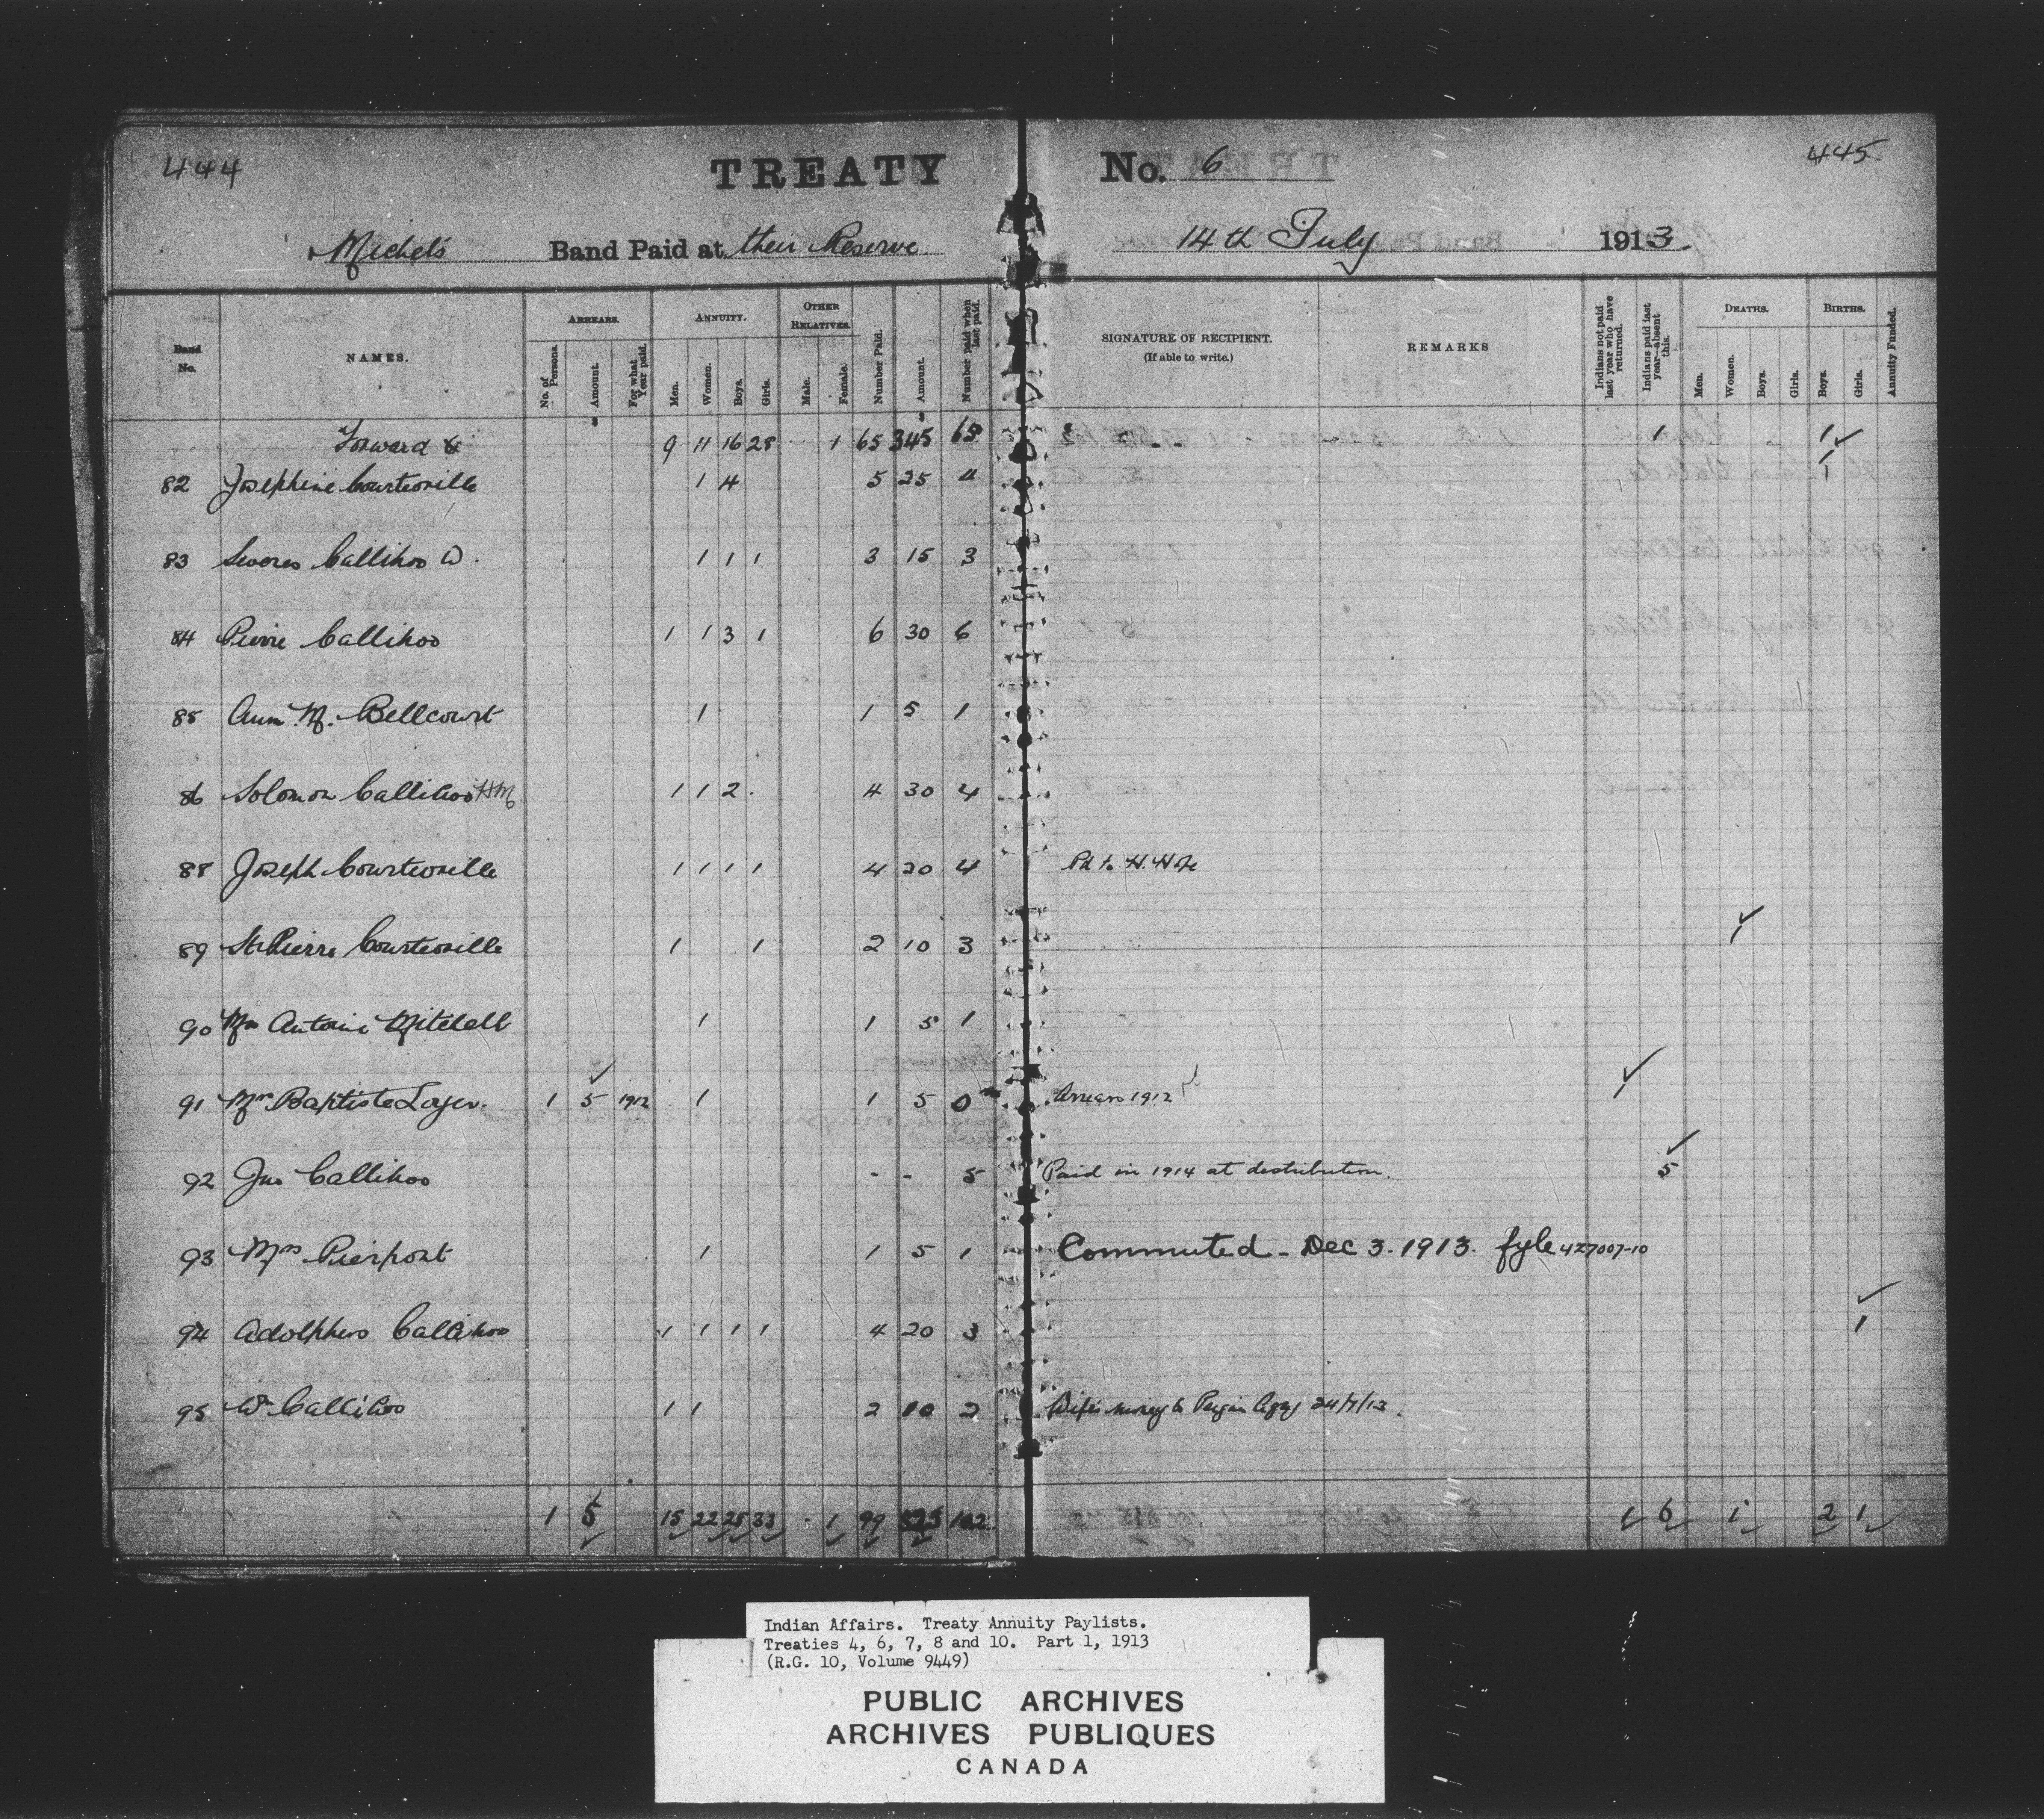 444 TREATY No. 6 445
Michel's Band Paid at their Reserve 14th July 1913
Band No. NAMES. ARREARS. ANNUITY. OTHER RELATIVES. Number Paid. Amount. Number paid when last paid. SIGNATURE OF RECIPIENT. (If able to write.) REMARKS Indians not paid last year who have returned. Indians paid last year—absent this. DEATHS. BIRTHS. Annuity Funded.
No. of Persons. Amount. For what Year paid. Men. Women. Boys. Girls. Male. Female. Men. Women. Boys. Girls. Boys. Girls.
Forward 9 11 16 28 1 65 345 65 1 1
82 Josephine Courteorille 1 4 5 25 4 1
83 Severes Callihoo W. 1 1 1 3 15 3
84 Pierre Callihoo 1 1 3 1 6 30 6
85 Ann M. Bellcourt 1 1 5 1
86 Solomon Callihoo HM 1 1 2 4 30 4
88 Joseph Courteorille 1 1 1 1 4 20 4 Pd to H.
89 St Pierre Courteorille 1 1 2 10 3 1
90 Mrs Antoine Mitchell 1 1 5 1
91 Mrs Baptiste Loyer. 1 5 1912 1 1 5 0 Arrears 1912 1
92 Jno Callihoo - - 5 Paid in 1914 at distribution. 5
93 Mrs Pierpont 1 1 5 1 Commuted - Dec 3 - 1913. fyle 427007-10
94 Adolphus Callihoo 1 1 1 1 4 20 3 1
95 Wm Callihoo 1 1 2 10 2 Wife's money to 24/7/13.
1 5 15 22 25 33 1 99 525 102 1 6 1 2 1
Indian Affairs. Treaty Annuity Paylists.
Treaties 4, 6, 7, 8 and 10. Part 1, 1913
(R.G. 10, Volume 9449)
PUBLIC ARCHIVES
ARCHIVES PUBLIQUES
CANADA